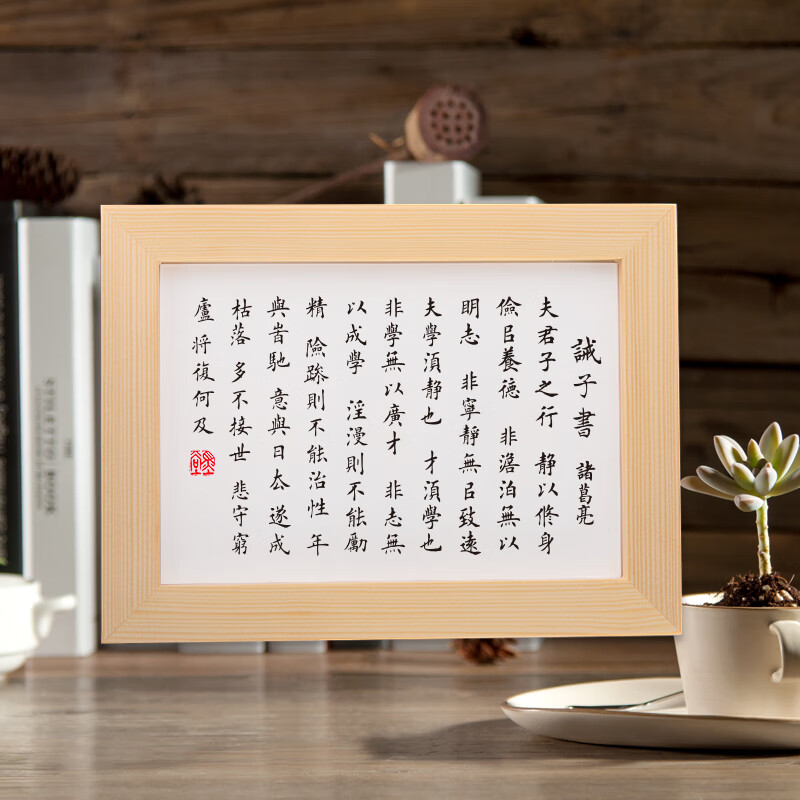 誡子書 諸葛亮
夫君子之行 靜以脩身
儉㠯養德 非澹泊無以
明志 非寧靜無㠯致遠
夫學須靜也 才須學也
非學無以廣才 非志無
以成學 淫漫則不能勵
精 險躁則不能治性 年
與旹馳 意與日去 遂成
枯落 多不接世 悲守窮
廬 將復何及